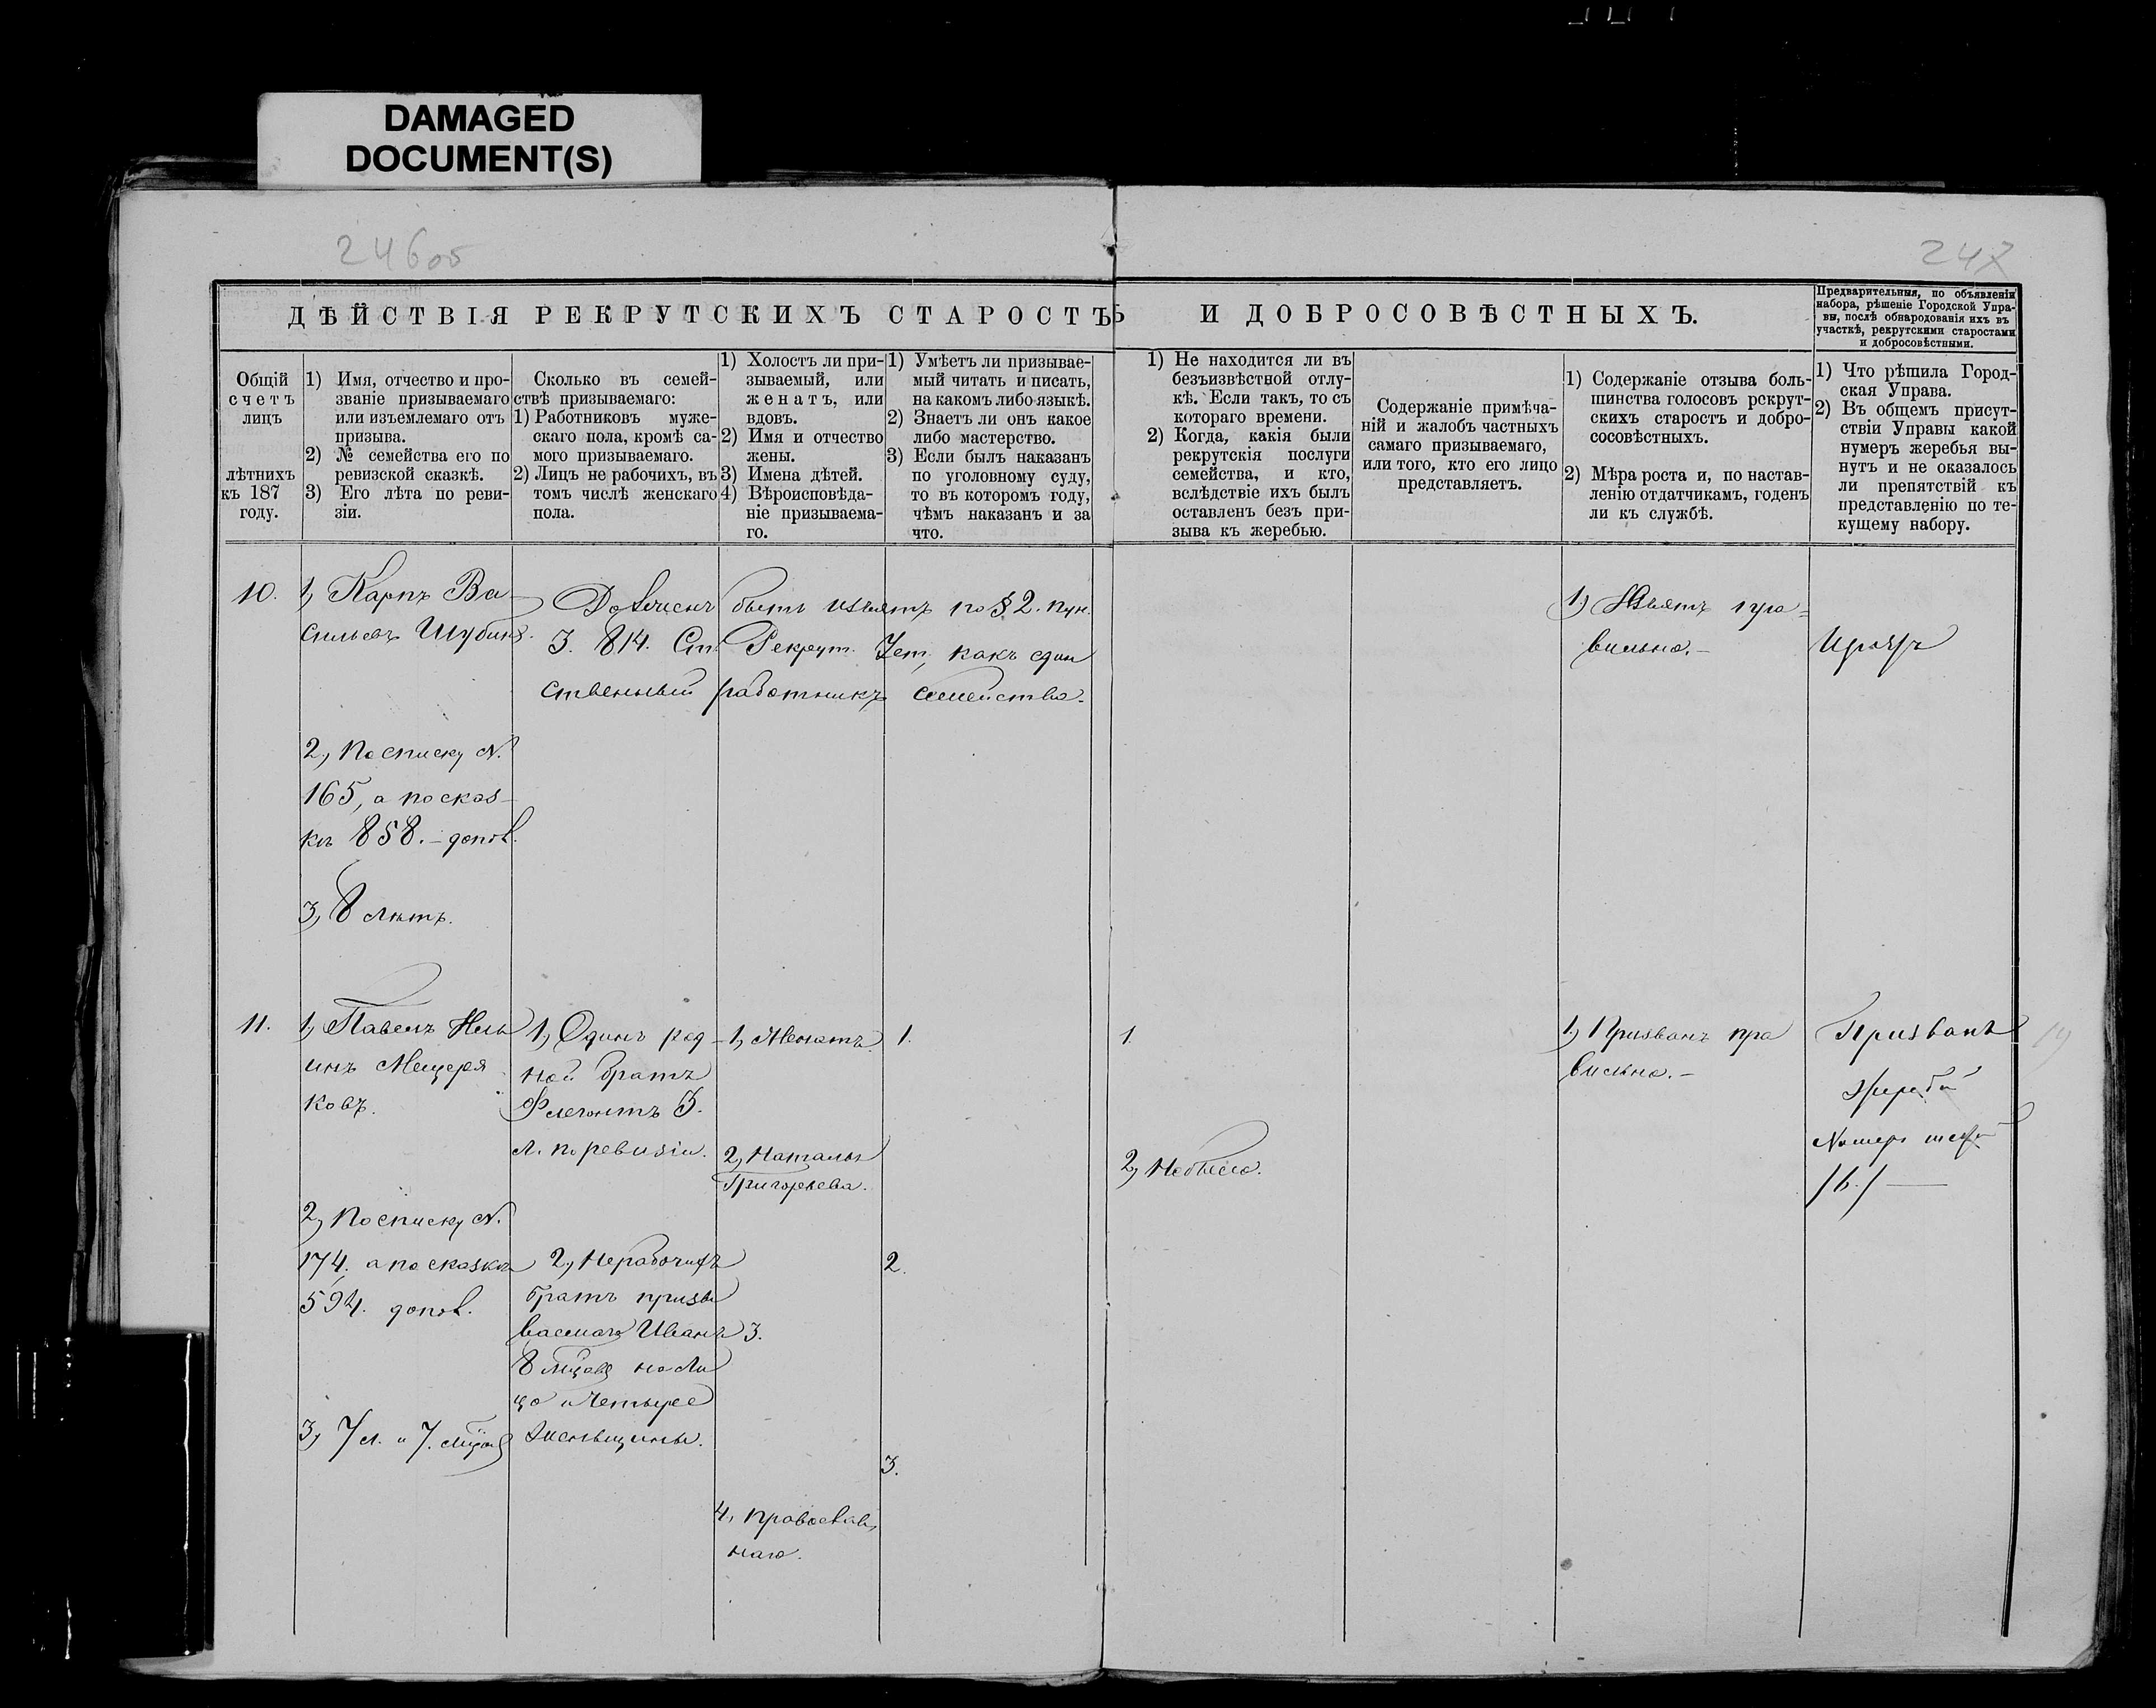 DAMAGED
DOCUMENT(S)
246об
247
ДѢЙСТВІЯ РЕКРУТСКИХЪ СТАРОСТЪ И ДОБРОСОВѢСТНЫХЪ.
Предварительныя, по объявленіи
набора, рѣшеніе Городской Упра-
вы, послѣ обнародованія ихъ въ
участкѣ, рекрутскими старостами
и добросовѣстными.
Общій
счетъ
лицъ
лѣтнихъ
къ 187
году.
1) Имя, отчество и про-
званіе призываемаго
или изъемлемаго отъ
призыва.
2) № семейства его по
ревизской сказкѣ.
3) Его лѣта по реви-
зіи.
Сколько въ семей-
ствѣ призываемаго:
1) Работниковъ муже-
скаго пола, кромѣ са-
мого призываемаго.
2) Лицъ не рабочихъ, въ
томъ числѣ женскаго
пола.
1) Холостъ ли при-
зываемый, или
женатъ, или
вдовъ.
2) Имя и отчество
жены.
3) Имена дѣтей.
4) Вѣроисповѣда-
ніе призываема-
го.
1) Умѣетъ ли призывае-
мый читать и писать,
на какомъ либо языкѣ.
2) Знаетъ ли онъ какое
либо мастерство.
3) Если былъ наказанъ
по уголовному суду,
то въ которомъ году,
чѣмъ наказанъ и за
что.
1) Не находится ли въ
безъизвѣстной отлу-
кѣ. Если такъ, то съ
котораго времени.
2) Когда, какія были
рекрутскія послуги
семейства, и кто,
вслѣдствіе ихъ былъ
оставленъ безъ при-
зыва къ жеребью.
Содержаніе примѣча-
ній и жалобъ частныхъ
самаго призываемаго,
или того, кто его лицо
представляетъ.
1) Содержаніе отзыва боль-
шинства голосовъ рекрут-
скихъ старостъ и добро-
совѣстныхъ.
2) Мѣра роста и, по настав-
ленію отдатчикамъ, годенъ
ли къ службѣ.
1) Что рѣшила Город-
ская Управа.
2) Въ общемъ присут-
ствіи Управы какой
нумеръ жеребья вы-
нутъ и не оказалось
ли препятствій къ
представленію по те-
кущему набору.
10.
1, Карпъ Ва-
сильевъ Шубинъ.
2, По списку №
165, а по сказ-
кѣ 858. - допол.
3, 8 лѣтъ.
Долженъ быть изъятъ по § 2. пун.
3. 814. Ст. Рекрут. Уст, какъ един
ственный работникъ семейства.
1) Изъятъ пра=
вильно. -
11.
1, Павелъ Иль
инъ Мещеря
ковъ.
2, По списку №
174. а по сказкѣ
594. допол.
3, 7 л. и 7. мѣсяц
1, Одинъ род-
ной братъ
Флегонтъ 3.
л. по ревизіи.
2, Нерабочихъ
братъ призы
ваемаго Иванъ
8 мѣсяцъ на ли
цо и четыре
женьщины.
1, Женатъ.
2, Наталья
Григорьева.
3.
4, Православ
наго.
1.
2.
3.
1.
2, Небыло.
1.) Призванъ пра
вильно. -
Призванъ
Жребій
Номеръ
/6./